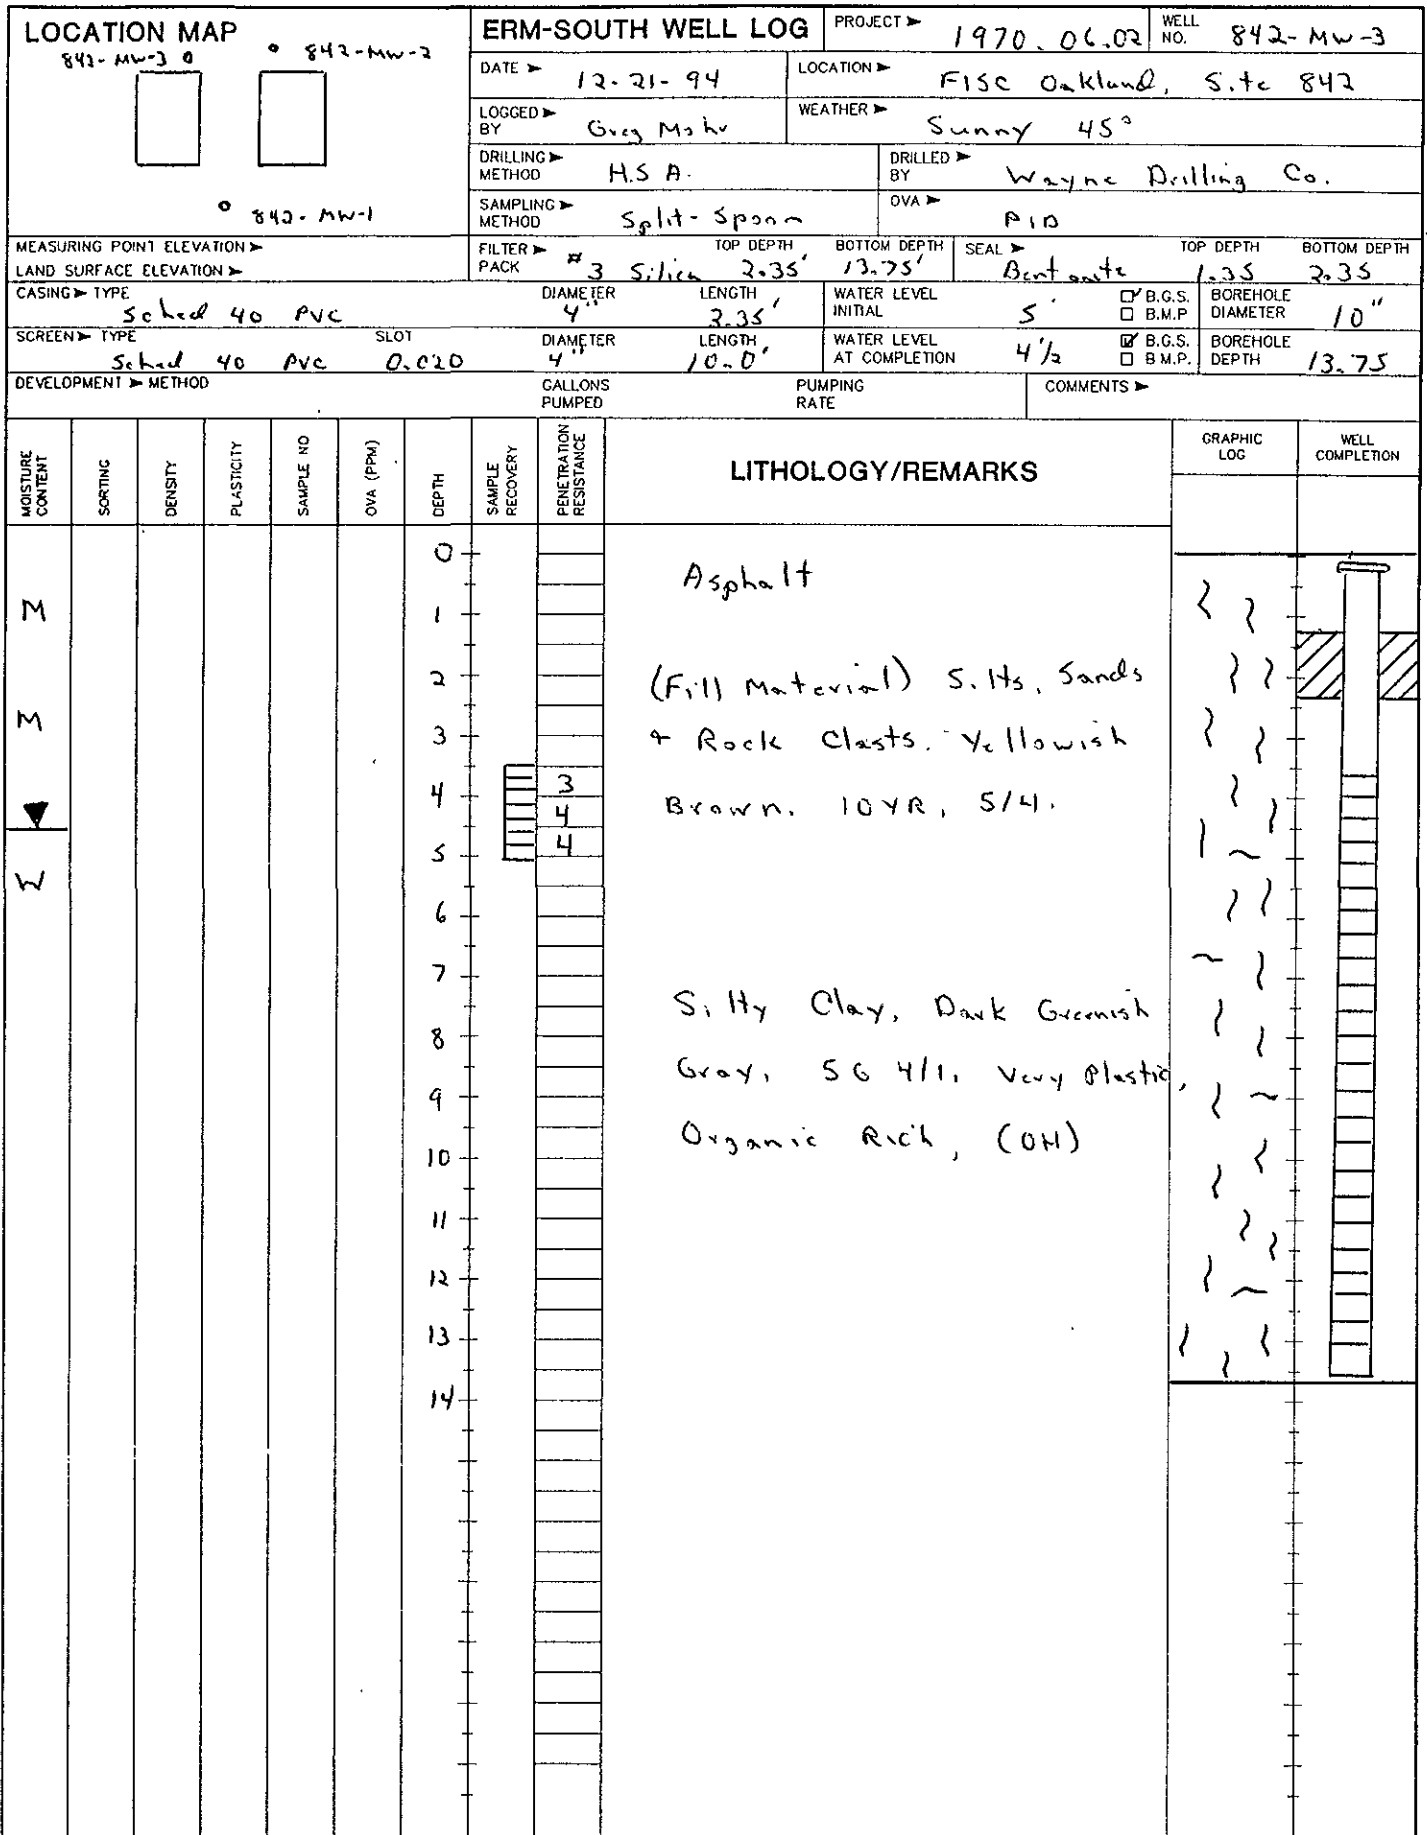 LOCATION MAP
842-MW-3
842-MW-2
842-MW-1
MEASURING POINT ELEVATION ➤
LAND SURFACE ELEVATION ➤
ERM-SOUTH WELL LOG
PROJECT ➤ 1970.06.02
WELL NO. 842-MW-3
DATE ➤ 12-21-94
LOCATION ➤ FISC Oakland, Site 842
LOGGED ➤ BY Greg Mohr
WEATHER ➤ Sunny 45°
DRILLING ➤ METHOD H.S A.
DRILLED ➤ BY Wayne Drilling Co.
SAMPLING ➤ METHOD Split-Spoon
OVA ➤ PID
FILTER ➤ PACK #3 Silica TOP DEPTH 2.35' BOTTOM DEPTH 13.75'
SEAL ➤ Bentonite TOP DEPTH 1.35 BOTTOM DEPTH 2.35
CASING ➤ TYPE Sched 40 PVC DIAMETER 4" LENGTH 3.35'
WATER LEVEL INITIAL 5' ☑ B.G.S. ☐ B.M.P
BOREHOLE DIAMETER 10"
SCREEN ➤ TYPE Sched 40 PVC SLOT 0.020 DIAMETER 4" LENGTH 10.0'
WATER LEVEL AT COMPLETION 4½ ☑ B.G.S. ☐ B M.P.
BOREHOLE DEPTH 13.75
DEVELOPMENT ➤ METHOD
GALLONS PUMPED
PUMPING RATE
COMMENTS ➤
MOISTURE CONTENT
SORTING
DENSITY
PLASTICITY
SAMPLE NO
OVA (PPM)
DEPTH
SAMPLE RECOVERY
PENETRATION RESISTANCE
LITHOLOGY/REMARKS
GRAPHIC LOG
WELL COMPLETION
0
Asphalt
M
1
2
(Fill Material) Silts, Sands
M
3
+ Rock Clasts. Yellowish
4
3
Brown. 10YR, 5/4.
4
5
4
W
6
7
Silty Clay, Dark Greenish
8
Gray, 5G 4/1, Very Plastic,
9
Organic Rich, (OH)
10
11
12
13
14